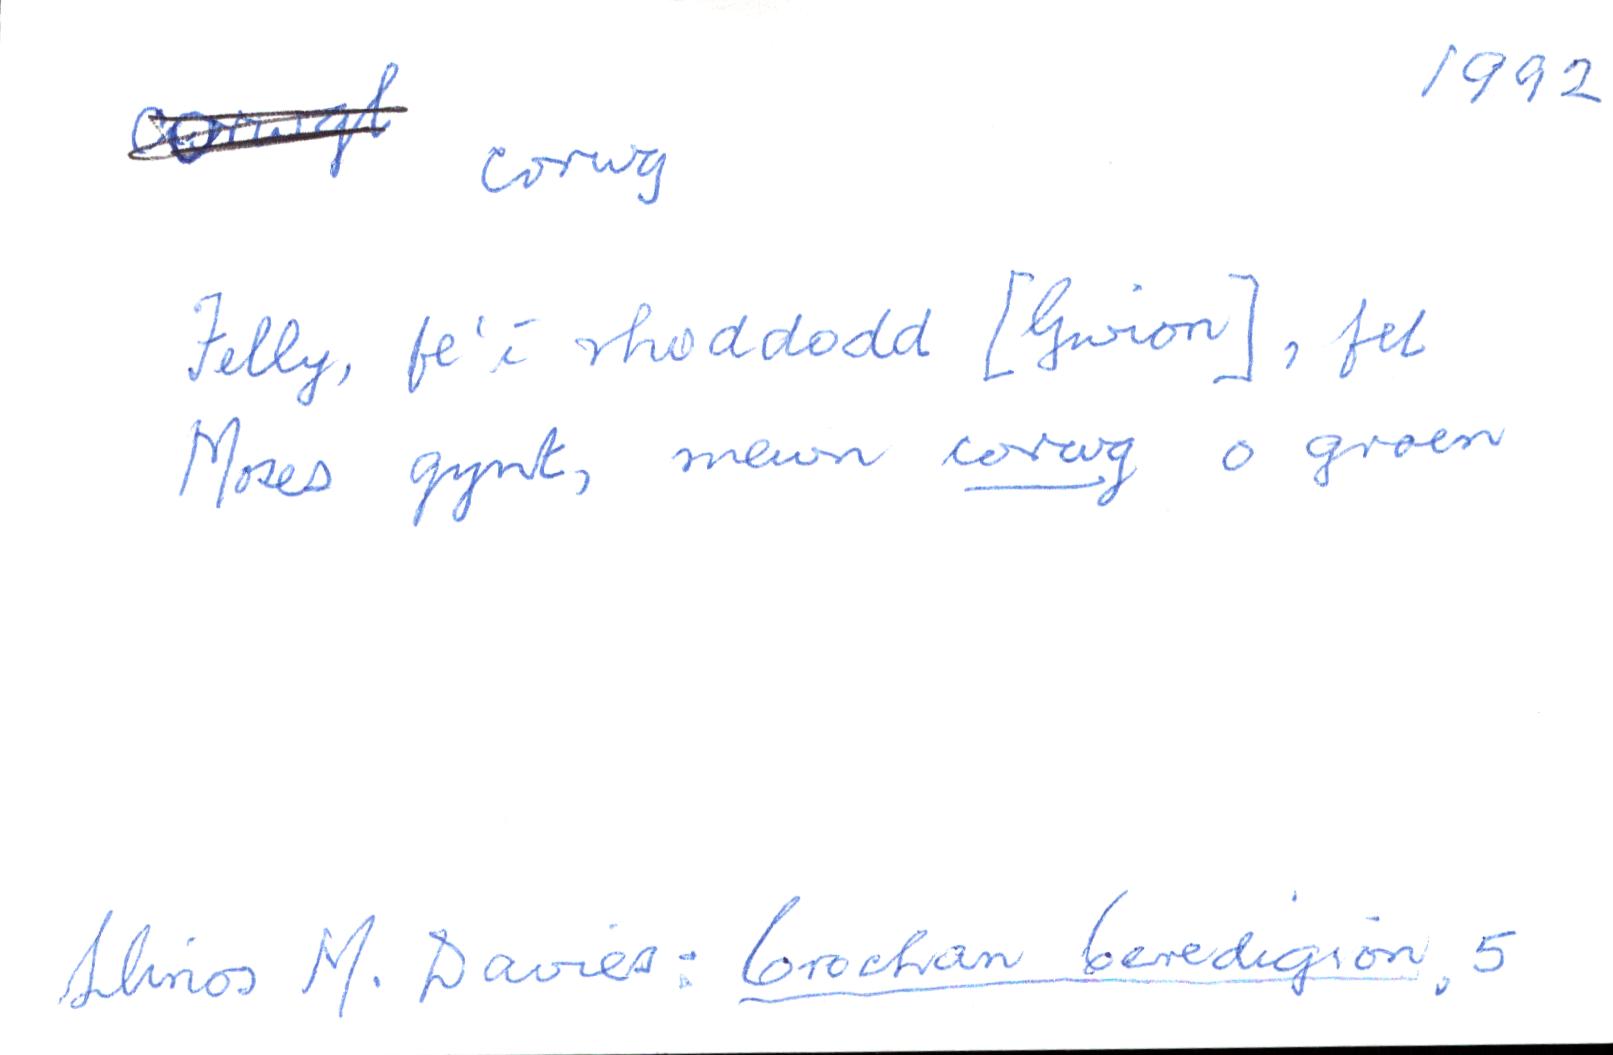 1992
corwgl
corwg
Felly, fe'i rhoddodd [Gwion], fel
Moses gynt, mewn corwg o groen
Llinos M. Davies: Crochan Ceredigion, 5